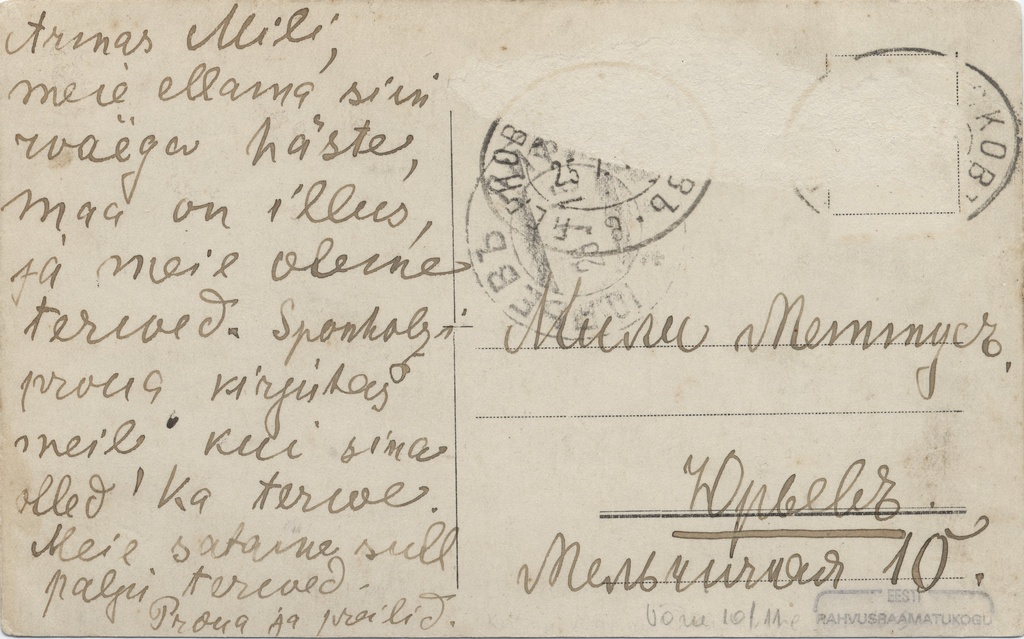 Armas Mili,
meie ellama siin
wäega häste,
maa on illus,
ja meie oleme
terwed. Sponholzi
proua kirjutas
meil kui sina
olled! Ka terwe.
Meie satame sull
palju terwed.
Proua ja preilid.
Мили Меттусъ.
Юрьевъ.
Мельничная 10.
EESTI
RAHVUSRAAMATUKOGU